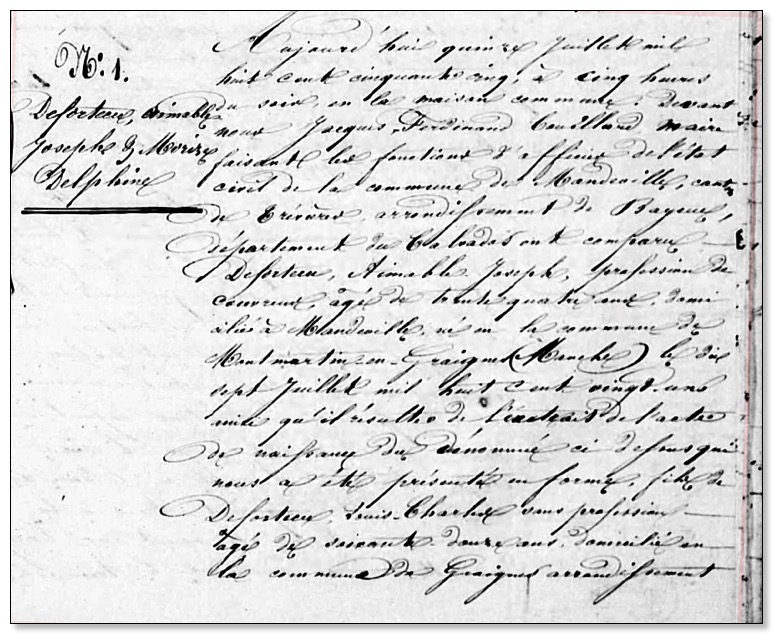 N.º 1.
Desorteux, Aimable
Joseph & 
Delphine
Aujourd'hui quinze Juillet mil
huit cent cinquante cinq, à cinq heures
du soir, en la maison commune. Devant
nous Jacques Ferdinand maire
faisant les fonctions d'officier de l'état
civil de la commune de Mandeville, canton
de Trévières, arrondissement de Bayeux,
département du Calvados ont comparu
Desorteux, Aimable Joseph, profession de
couvreur, âgé de trente quatre ans, domi
cilié à Mandeville, né en la commune de
Montmartin-en-Graignes (Manche) le dix
sept Juillet mil huit cent vingt-un
qu'il résulte de l'extrait de l'acte
de naissance du dénommé ci dessus qui
nous a été présenté en forme, fils de
Desorteux, Louis-Charles sans profession
âgé de soixante douze ans, domicilié en
la commune de Graignes arrondissement